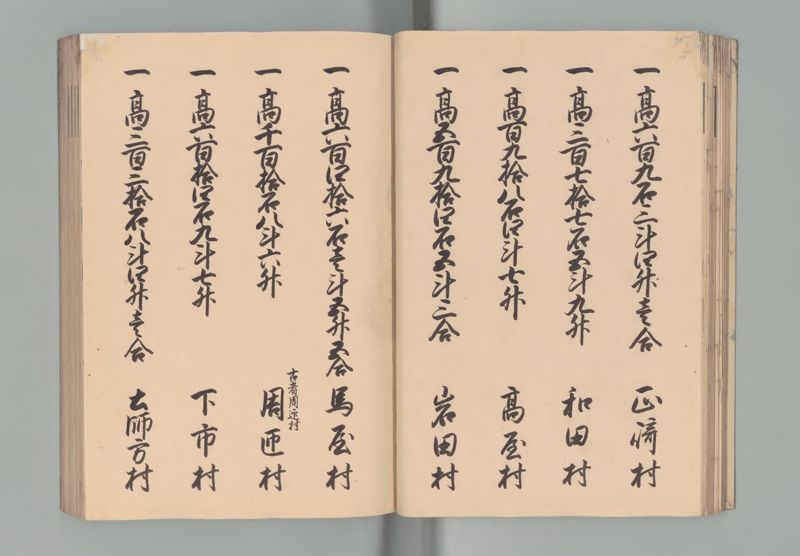 一 高六百九石二斗四升壱合 正崎村
一 高三百七拾七石五斗九升 和田村
一 高百九拾八石四斗七升 高屋村
一 高五百九拾四石五斗三合 岩田村
一 高六百四拾六石壱斗五升五合 馬屋村
一 高千百拾石八斗六升 周匝村
古者周迊村
一 高六百拾四石九斗七升 下市村
一 高三百二拾石八斗四升壱合 土師方村